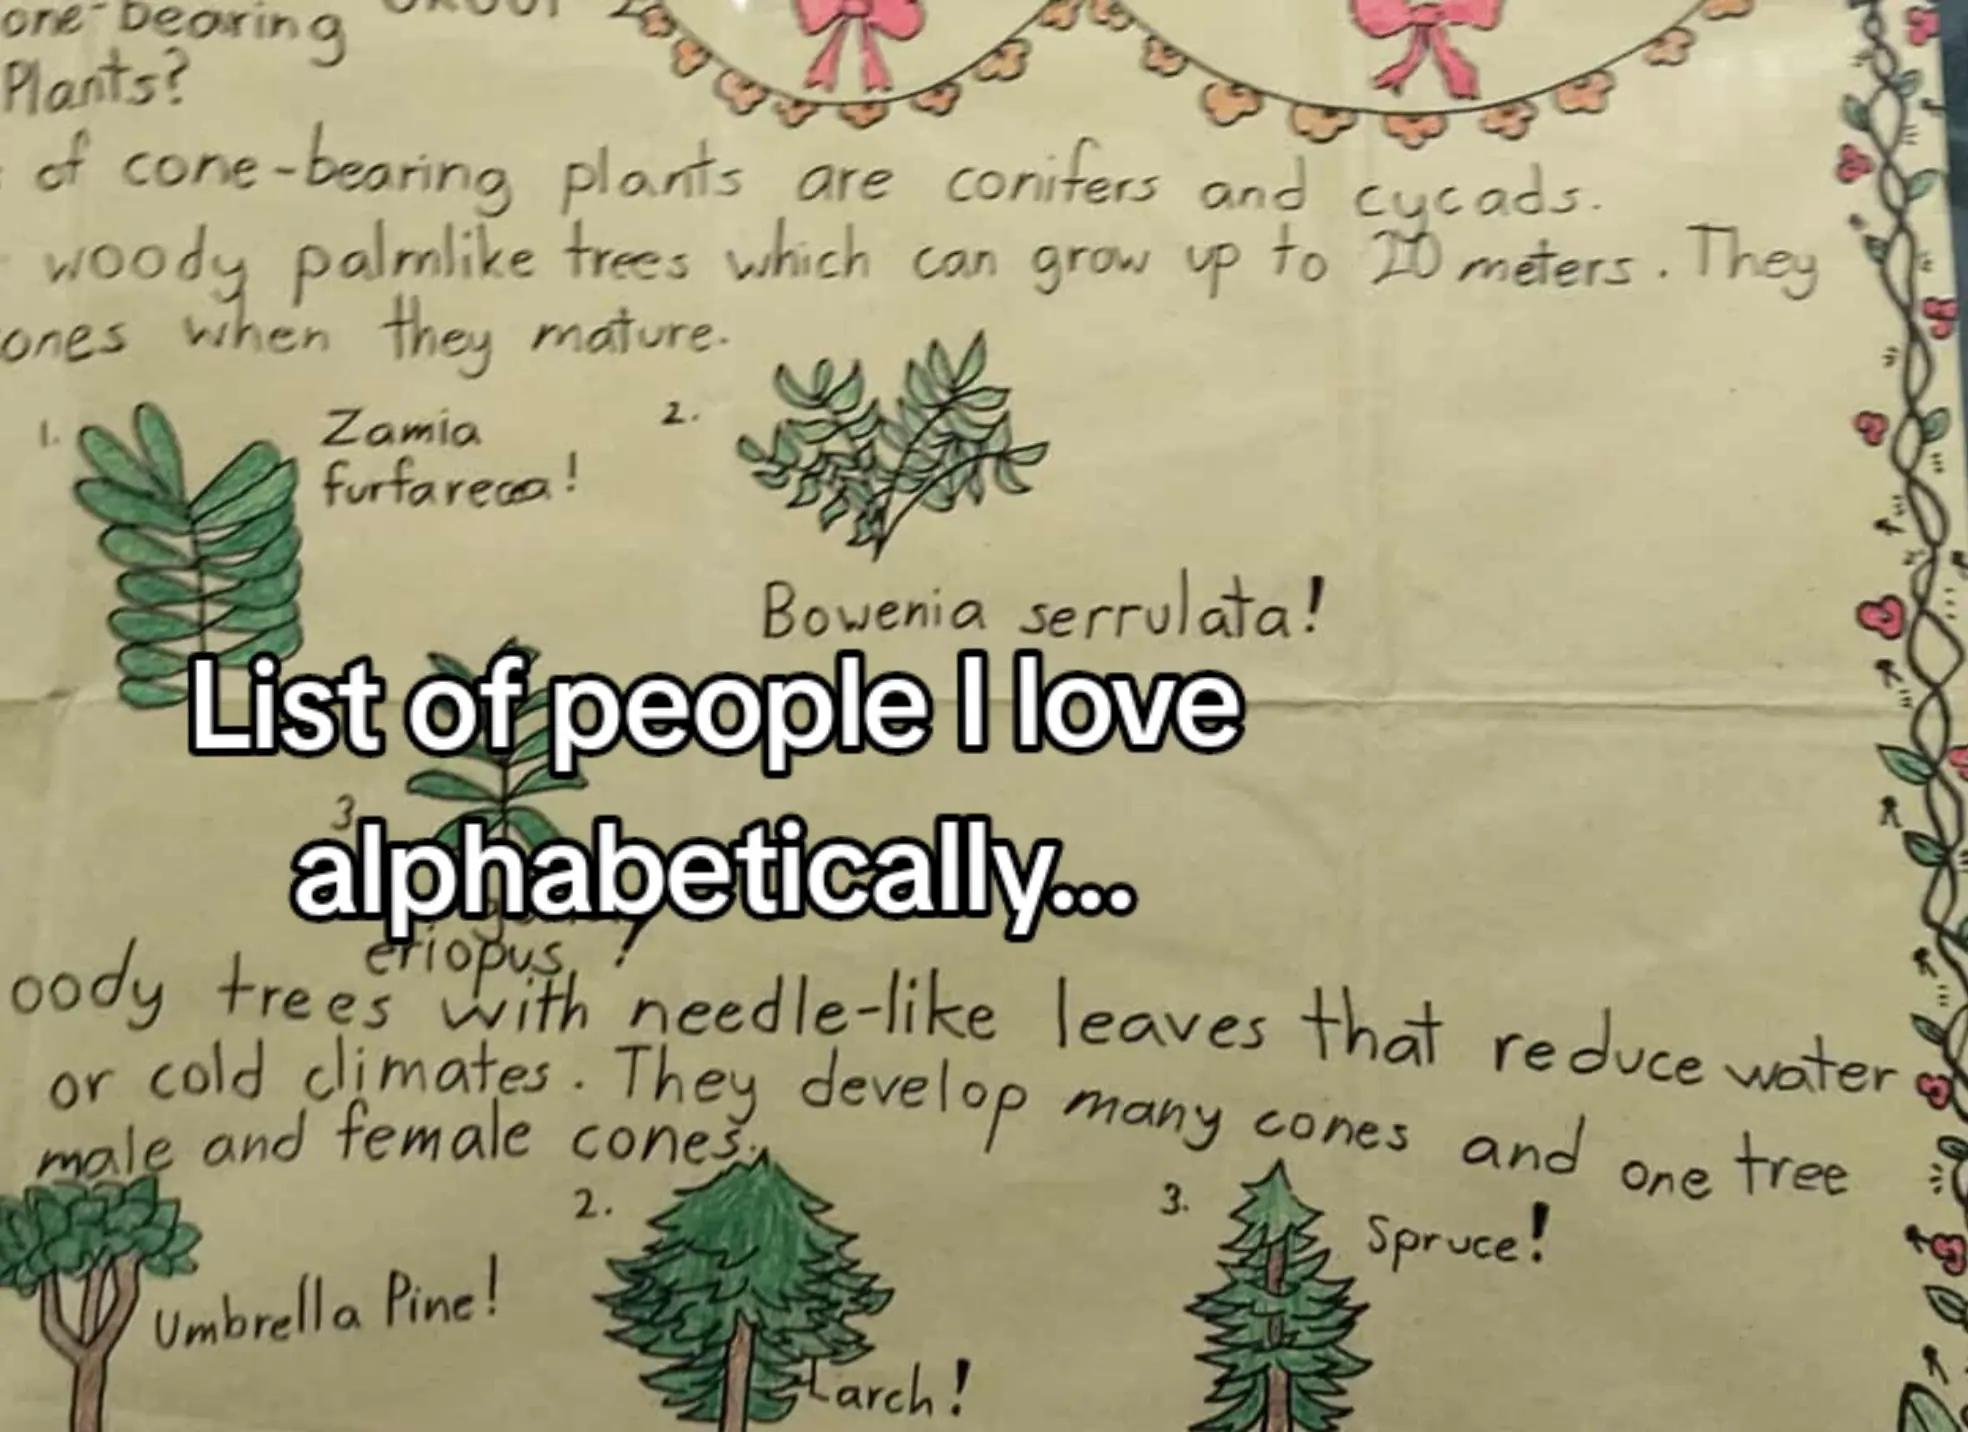 one-bearing
Plants?
of cone-bearing plants are conifers and cycads.
woody palmlike trees which can grow up to 20 meters. They
ones when they mature.
1.
Zamia
furfareca!
2.
Bowenia serrulata!
List of people I love
3.
alphabetically...
eriopus!
oody trees with needle-like leaves that reduce water
or cold climates. They develop many cones and one tree
male and female cones.
Umbrella Pine!
2.
Larch!
3.
Spruce!